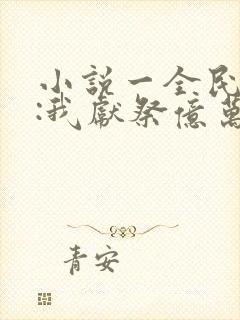 小説一全民
:我獻祭億萬
青安